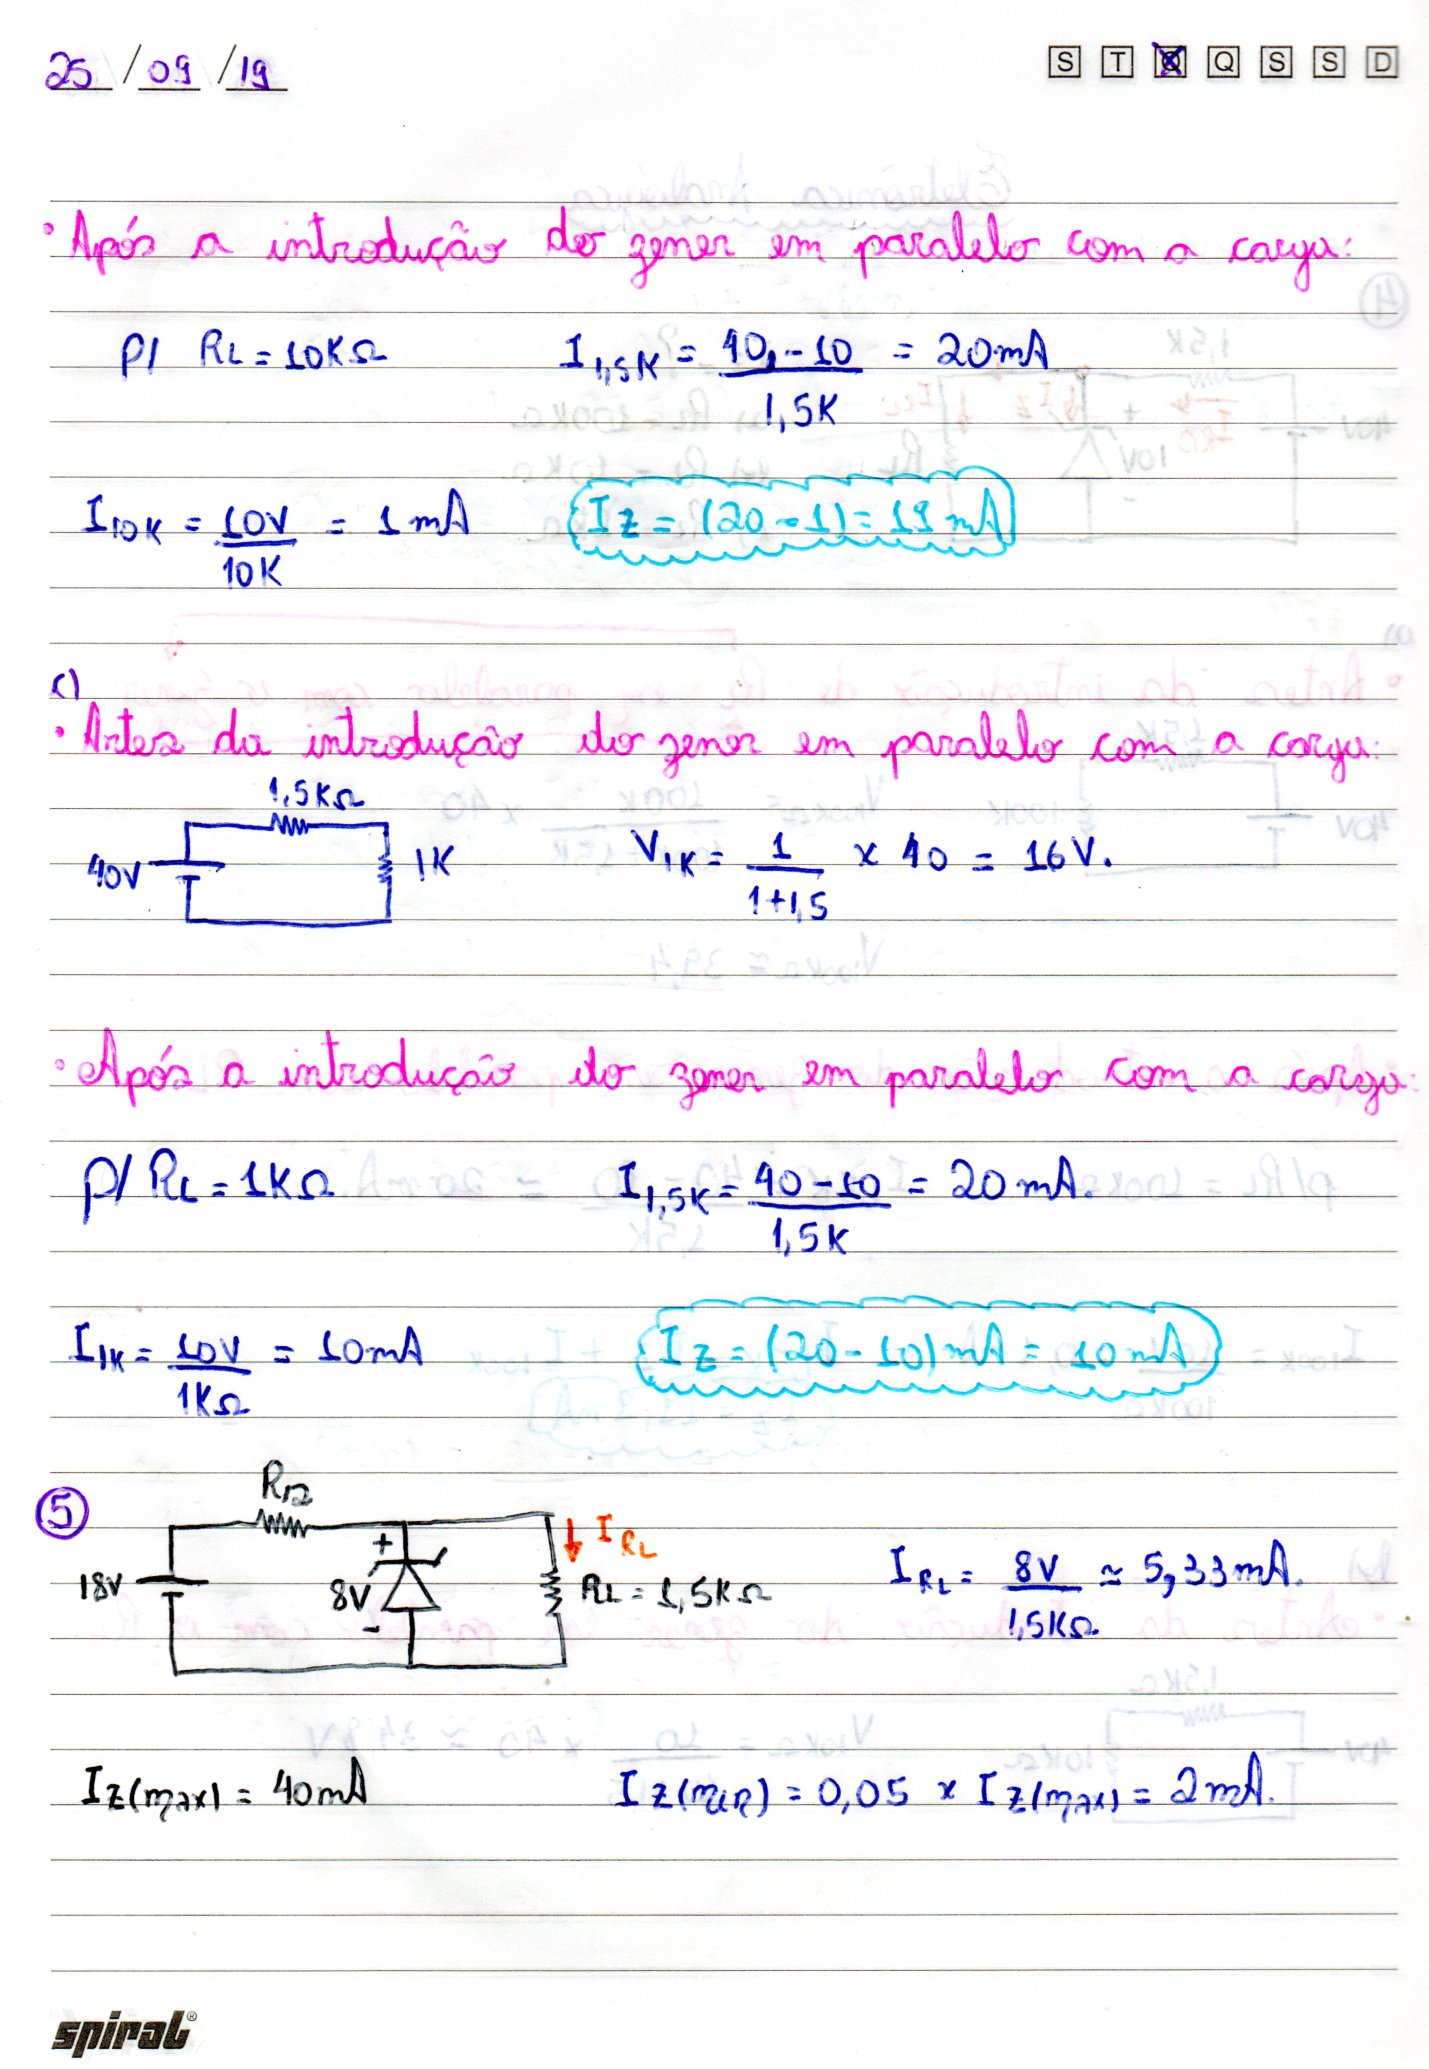 25 / 09 / 19 S T Q Q S S D
• Após a introdução do zener em paralelo com a carga:
p/ RL = 10KΩ I1,5K = 40 - 10 / 1,5K = 20mA
I10K = 10V / 10K = 1mA IZ = (20 - 1) = 19 mA
c)
• Antes da introdução do zener em paralelo com a carga:
1,5KΩ
40V 1K V1K = 1 / 1+1,5 x 40 = 16V.
• Após a introdução do zener em paralelo com a carga:
p/ RL = 1KΩ I1,5K = 40 - 10 / 1,5K = 20mA.
I1K = 10V / 1KΩ = 10mA IZ = (20 - 10)mA = 10mA
5 RΩ
18V + 8V - IRL RL = 1,5KΩ IRL = 8V / 1,5KΩ ≃ 5,33mA.
IZ(max) = 40mA IZ(min) = 0,05 x IZ(max) = 2mA.
spiral®